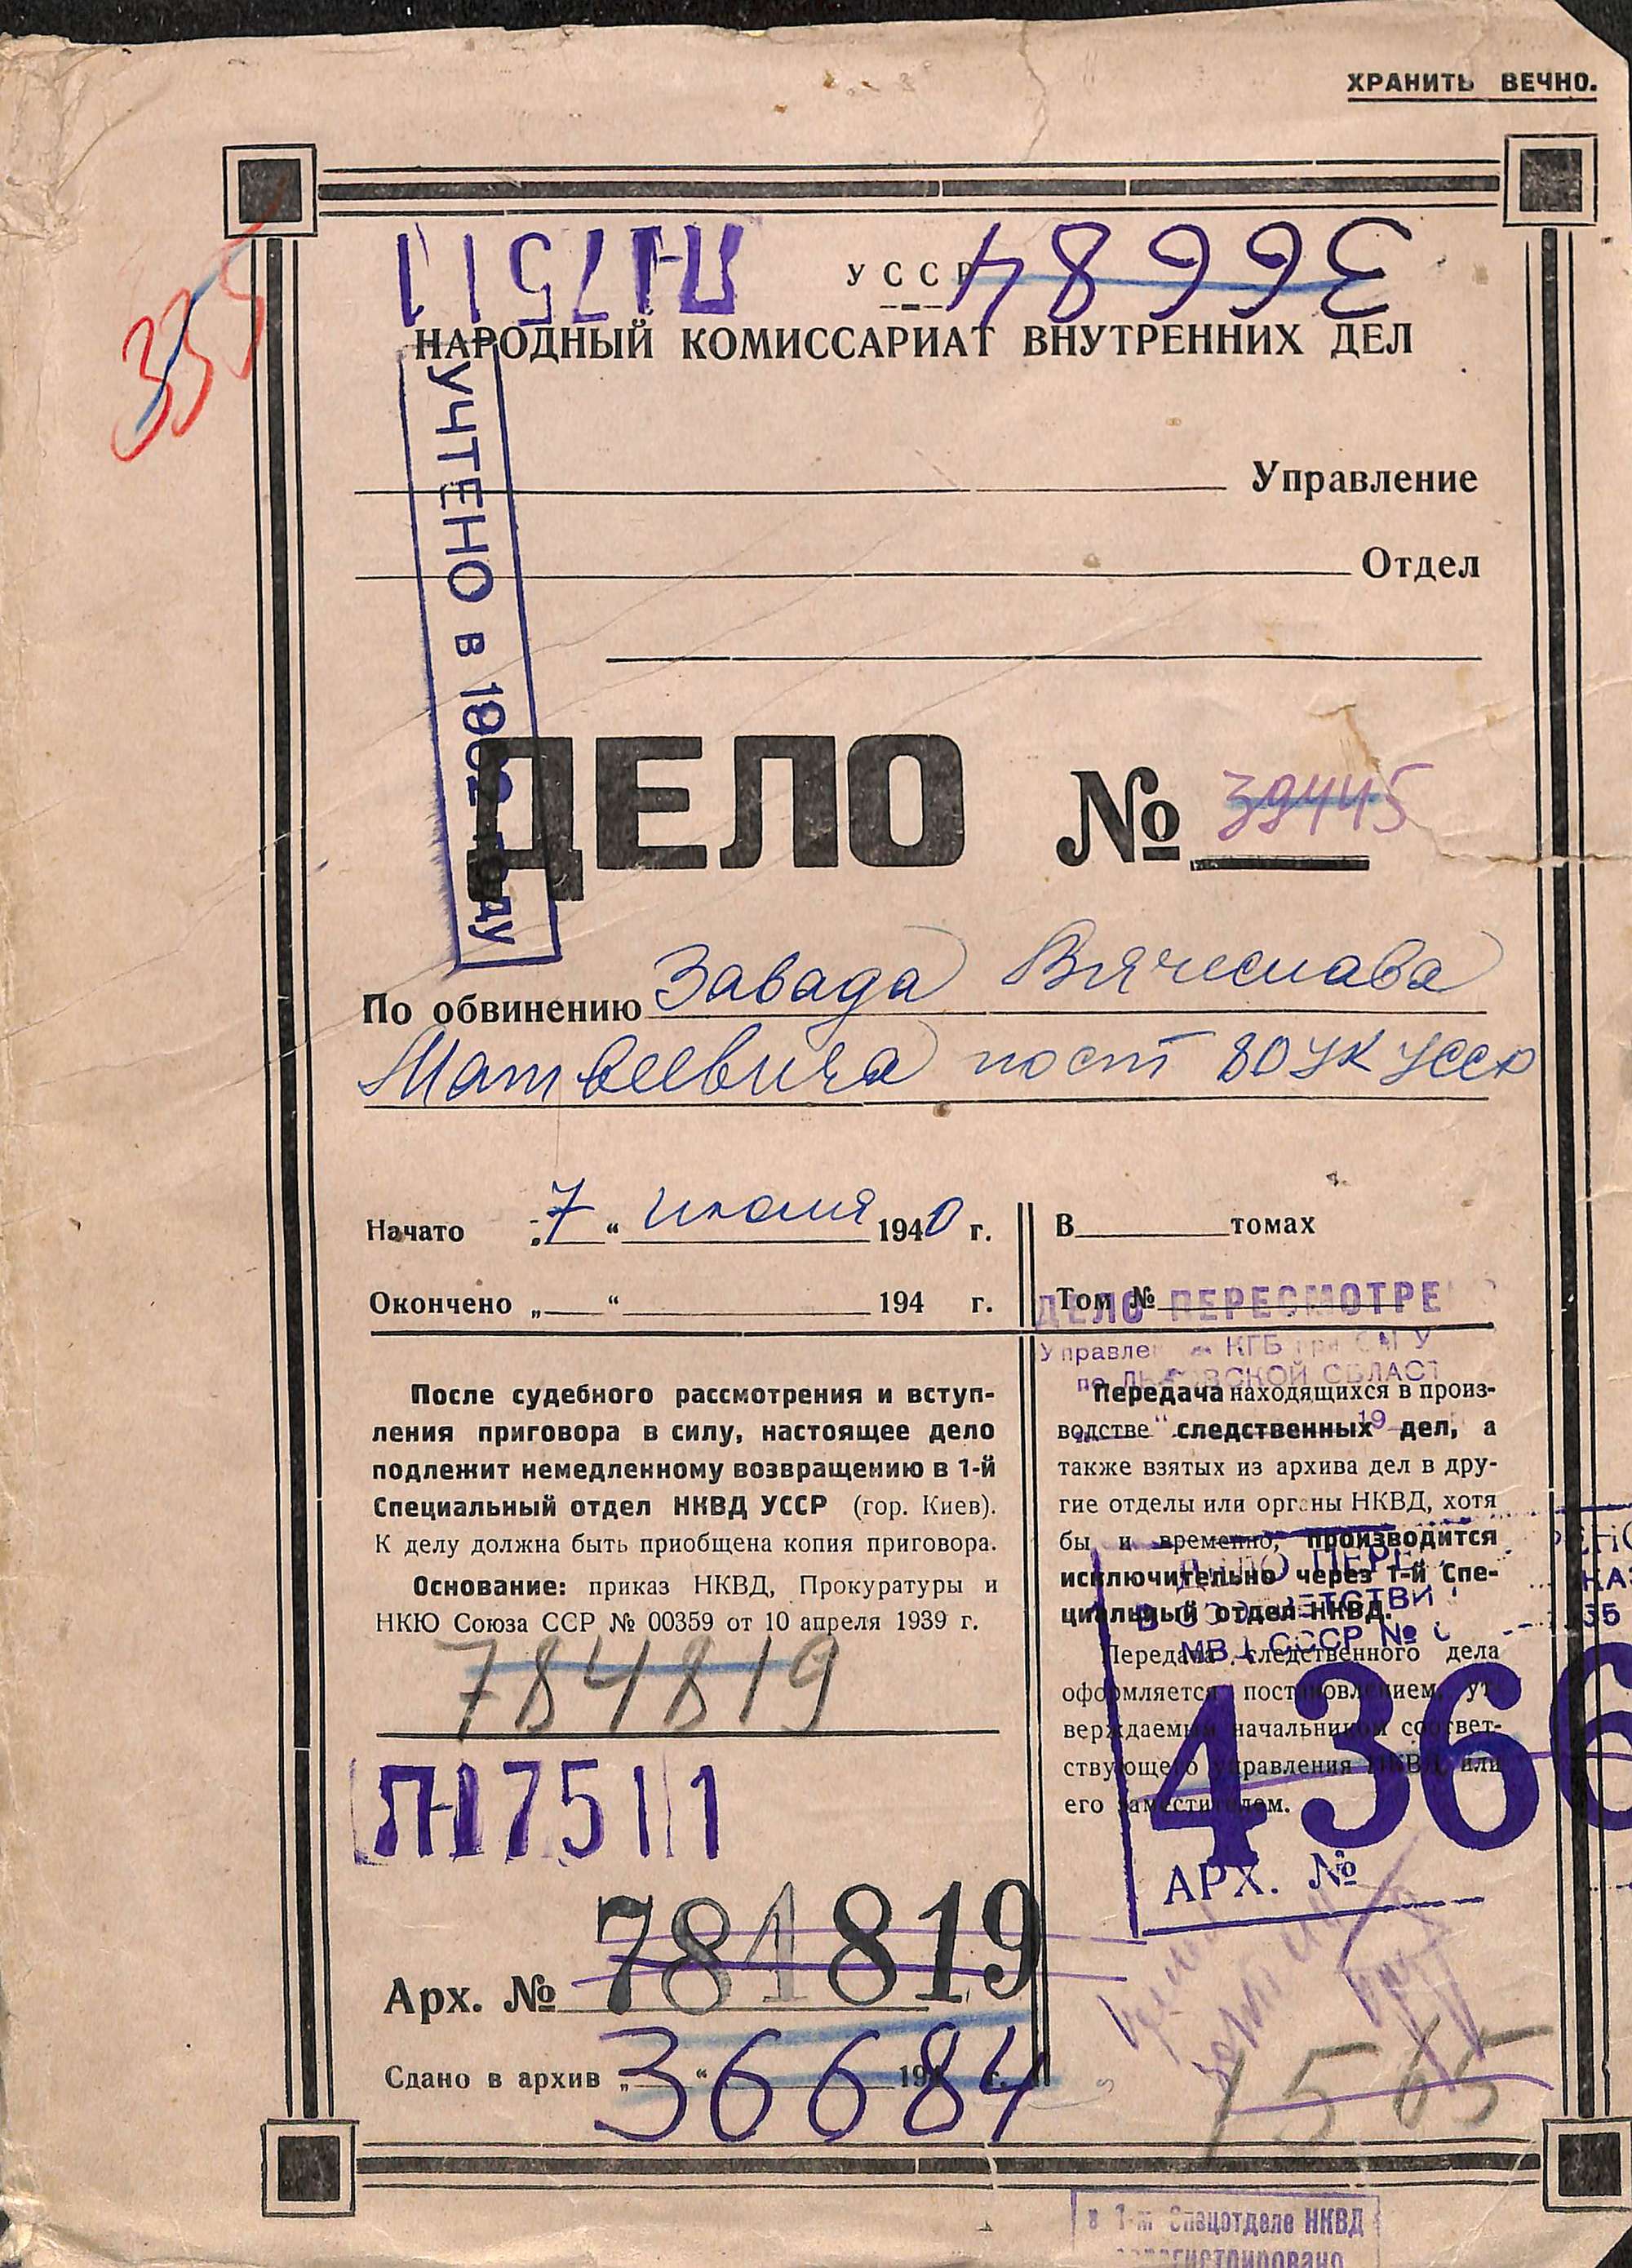 ХРАНИТЬ ВЕЧНО.
335
П-17511
36684
УССР
НАРОДНЫЙ КОМИССАРИАТ ВНУТРЕННИХ ДЕЛ
Управление
Отдел
УЧТЕНО В 1962 году
ДЕЛО № 39445
По обвинению Завада Вячеслава
Матвеевича по ст 80 УК УССР
Начато „7“ июля 1940 г.
В томах
Окончено „ “ 194 г.
Том №
ДЕЛО ПЕРЕСМОТРЕ
Управле КГБ при СМ У
по ЛЬВОВСКОЙ ОБЛАСТ
19
После судебного рассмотрения и вступ-
ления приговора в силу, настоящее дело
подлежит немедленному возвращению в 1-й
Специальный отдел НКВД УССР (гор. Киев).
К делу должна быть приобщена копия приговора.
Основание: приказ НКВД, Прокуратуры и
НКЮ Союза ССР № 00359 от 10 апреля 1939 г.
784819
П-17511
Арх. № 784819
Сдано в архив „ “ 194 г.
36684
Передача находящихся в произ-
водстве следственных дел, а
также взятых из архива дел в дру-
гие отделы или органы НКВД, хотя
бы и временно, производится
исключительно через 1-й Спе-
циальный отдел НКВД.
Передача следственного дела
оформляется постановлением, ут
верждаемым начальником соответ-
ствующего управления НКВД или
его заместителем.
ДЕЛО ПЕРЕ
В СООТВЕТСТВИ
МВД СССР №
35
4366
АРХ. №
1565
в 1-м Спецотделе НКВД
зарегистрировано